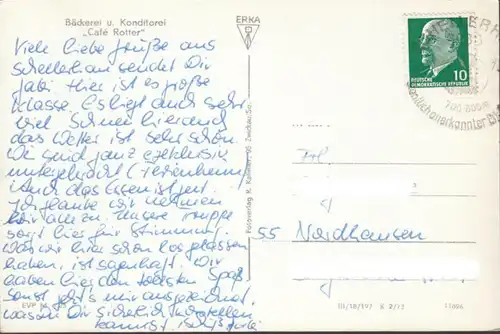 Bäckerei u. Konditorei
„Café Rotter"
ERKA
Viele liebe Grüße aus
Schellerhau sendet Dir
Gabi. Hier ist es große
Klasse. Es liegt auch sehr
viel Schnee hier und
das Wetter ist sehr schön.
Wir sind ganz exklusiv
untergebracht (Ferienheim)
Auch das Essen ist gut.
Ich glaube wir nehmen
hier alle zu. Unsere Truppe
sorgt hier für Stimmung.
Was wir hier schon losgelassen
haben, ist sagenhaft. Wir
haben hier den tollsten Spaß
Sonst geht's mir ausgezeichnet,
was Du Dir sicherlich vorstellen
kannst.
10
DEUTSCHE
DEMOKRATISCHE REPUBLIK
700-800m
Frl.
55 Nordhausen
Fotoverlag R. Kallmer, 99 Zwickau/Sa.
EVP
III/18/197 K 2/73